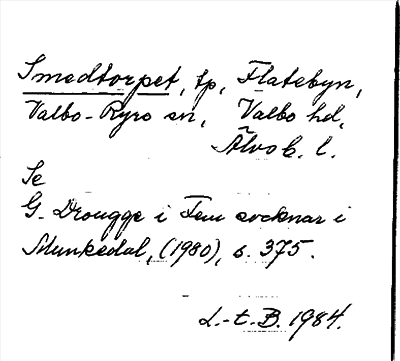 Smedtorpet, tp, Flatebyn,
Valbo-Ryrs sn, Valbo hd,
Älvsb. l.
Se
G. Drougge i Fem socknar i
Munkedal, (1980), s. 375.
L.-t. B. 1984.